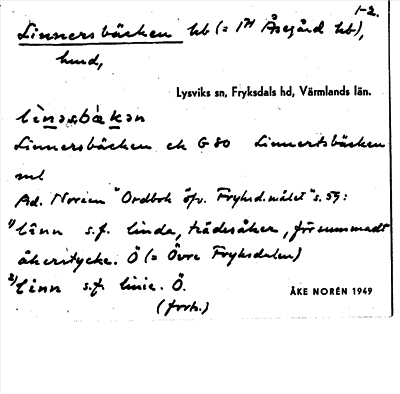 1-2.
Linnersbäcken hb (= 1/4 Åsegård hb),
hmd,
Lysviks sn, Fryksdals hd, Värmlands län.
Linnersbäcken ek G 80 Linnertsbäcken
ml
Ad. Noreen "Ordbok öfv. Fryksd.målet" s. 59:
1) linn s.f. linda, trädesåker, försummadt
åkerstycke. Ö (= Övre Fryksdalen)
2) linn s.f. linie. Ö.
(forts.)
ÅKE NORÉN 1949